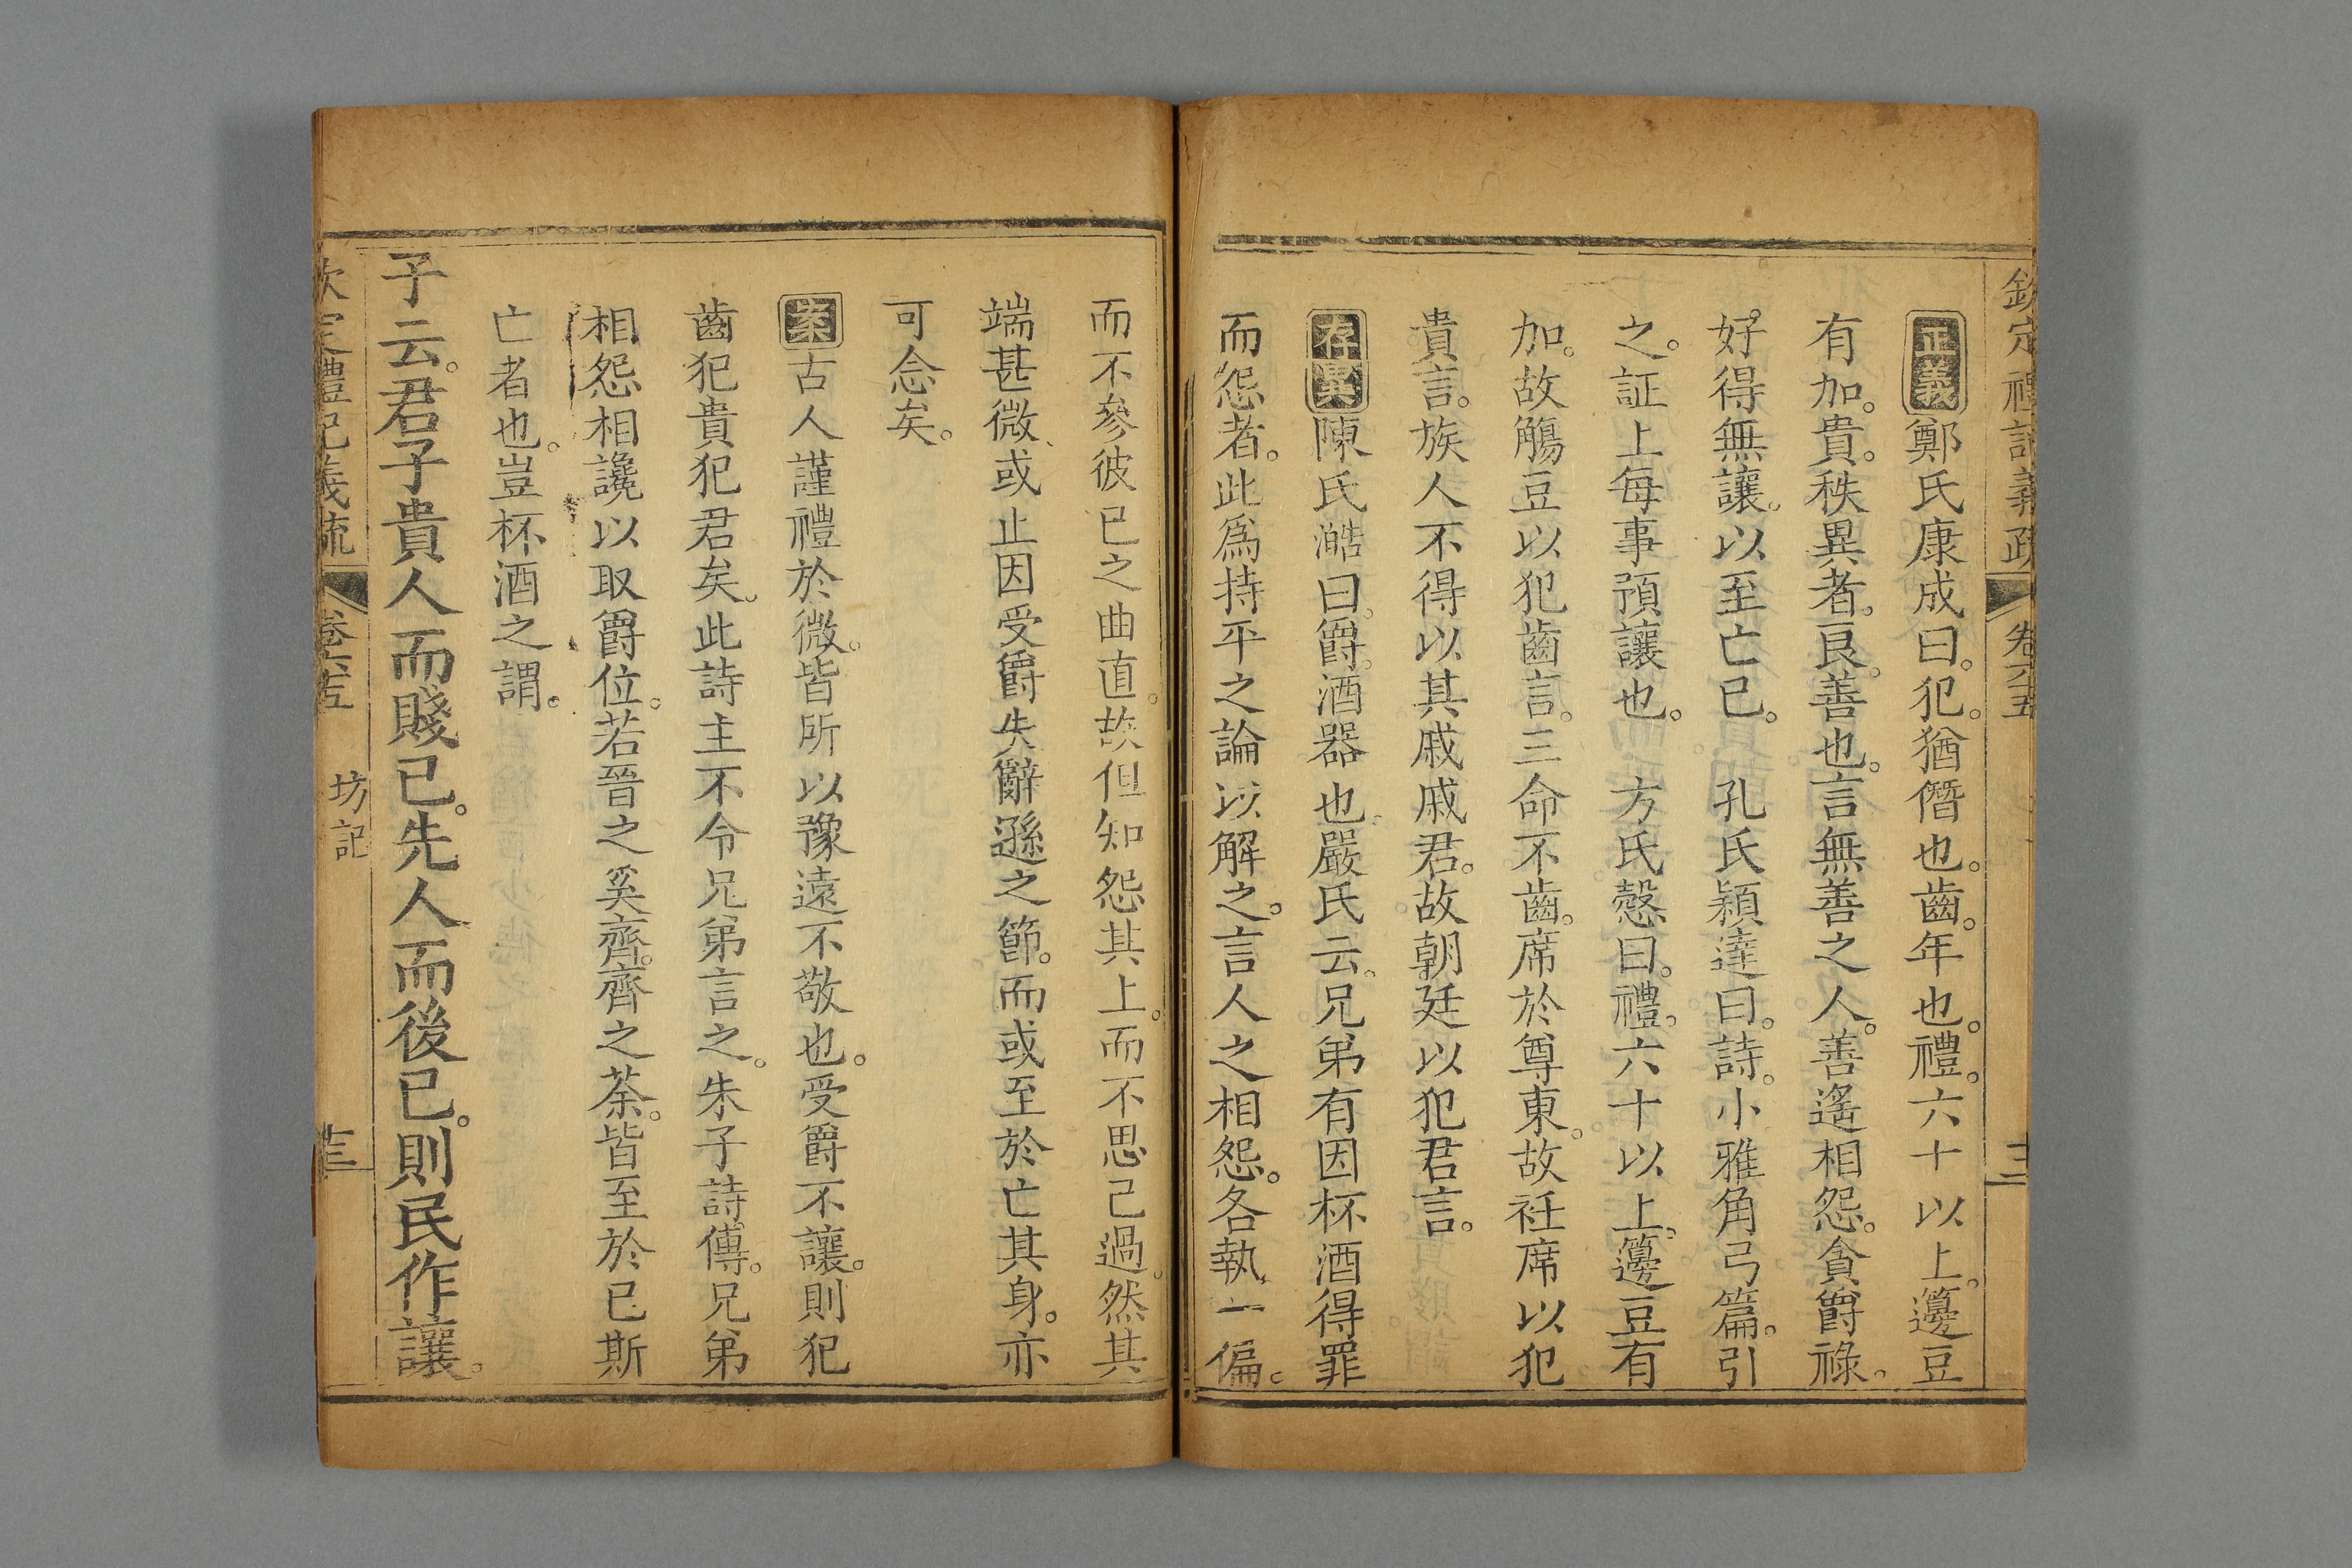 欽定禮記義疏 卷六十五 十二
正義鄭氏康成曰。犯。猶僭也。齒。年也。禮。六十以上。籩豆
有加。貴。秩異者。良。善也。言無善之人。善遙相怨。貪爵祿。
好得無讓。以至亡已。 孔氏穎達曰。詩。小雅角弓篇。引
之。証上每事預讓也。 方氏慤曰。禮。六十以上。籩豆有
加。故觴豆以犯齒言。三命不齒。席於尊東。故衽席以犯
貴言。族人不得以其戚戚君。故朝廷以犯君言。
存異陳氏澔曰。爵。酒器也。嚴氏云。兄弟有因杯酒得罪
而怨者。此爲持平之論以解之。言人之相怨。各執一偏。
而不參彼已之曲直。故但知怨其上。而不思己過。然其
端甚微、或止因受爵失辭遜之節。而或至於亡其身。亦
可念矣。
案古人謹禮於微。皆所以豫遠不敬也。受爵不讓。則犯
齒犯貴犯君矣。此詩主不令兄弟言之。朱子詩傳。兄弟
相怨相讒以取爵位。若晉之奚齊。齊之荼。皆至於已斯
亡者也。豈杯酒之謂。
子云。君子貴人而賤已。先人而後已。則民作讓。
欽定禮記義疏 卷六十五 坊記 十三